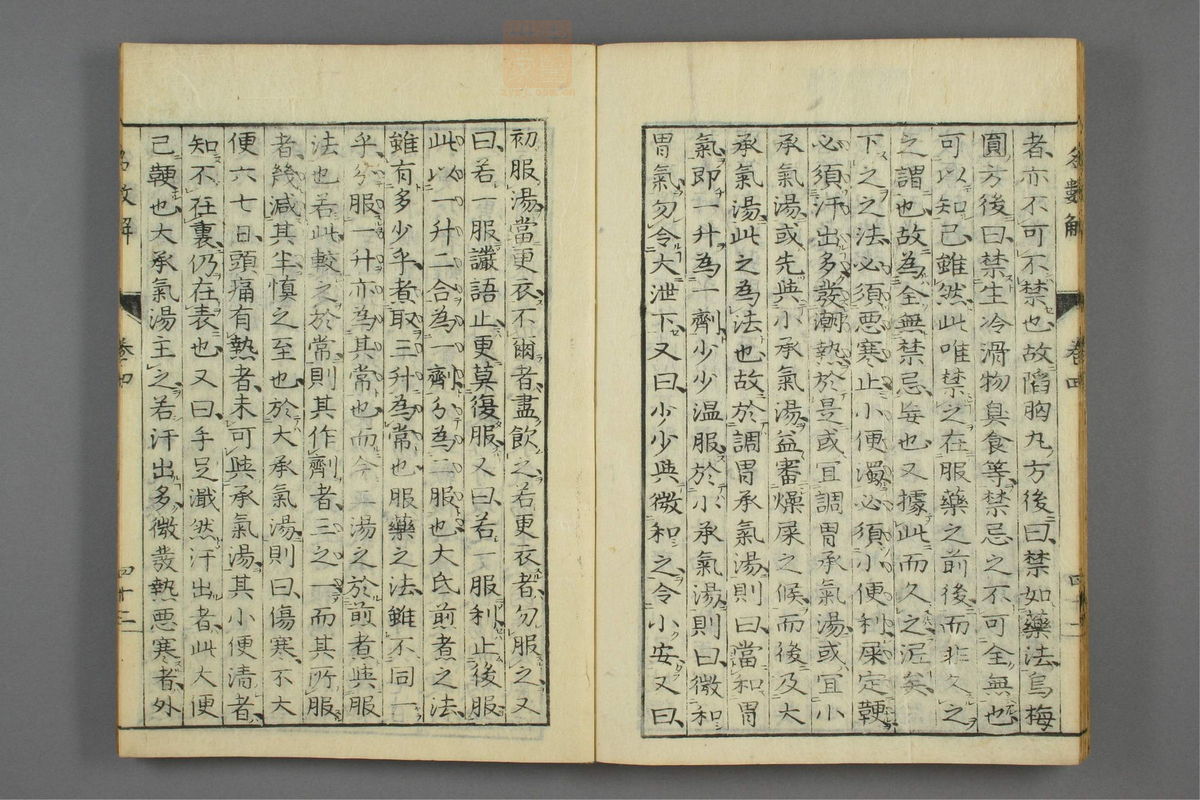 者亦不可不禁也故陷胸丸方後曰禁如藥法烏梅
圓方後曰禁生冷滑物臭食等禁忌之不可全無也
可以知已雖然此唯禁之在服藥之前後而非久之
之謂也故為全無禁忌妄也又據此而久之泥矣
下之之法必須惡寒止小便濁必須小便利屎定鞕
必須汗出多發潮熱於是或宜調胃承氣湯或宜小
承氣湯或先與小承氣湯益審燥屎之候而後及大
承氣湯此之為法也故於調胃承氣湯則曰當和胃
氣即一升為一劑少少溫服於小承氣湯則曰微和
胃氣勿令大泄下又曰少少與微和之令小安又曰
卷四
初服湯當更衣不爾者盡飲之若更衣者勿服之又
曰若一服讝語止更莫復服又曰若一服利止後服
此以一升二合為一劑分為二服也大氐煎煮之法
雖有多少乎煮取三升為常也服藥之法雖不同一
乎分服一升亦為其常也而今湯之於煎煮與服
法也若此較之於常則其作劑者三之一而其所服
者幾減其半慎之至也於大承氣湯則曰傷寒不大
便六七日頭痛有熱者未可與承氣湯其小便清者
知不在裏仍在表也又曰手足濈然汗出者此大便
已鞕也大承氣湯主之若汗出多微發熱惡寒者外
卷四
四十二